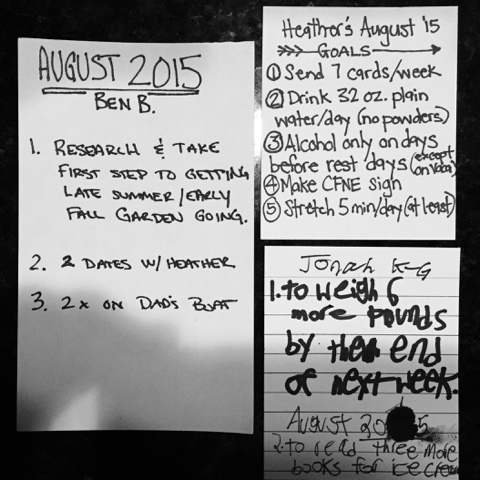 AUGUST 2015
BEN B.
1. RESEARCH & TAKE
FIRST STEP TO GETTING
LATE SUMMER/EARLY
FALL GARDEN GOING.
2. 2 DATES W/ HEATHER
3. 2x ON DAD'S BOAT
Heathror's August '15
GOALS
① Send 7 cards/week
② Drink 32 oz. plain
water/day (no powders)
③ Alcohol only on days
before rest days (except
on vaca)
④ Make CFNE sign
⑤ Stretch 5 min/day (at least)
Jonah K-G
1. to weigh 6
more pounds
by the end
of next week.
August 20 5
2. to read three more
books for ice cream